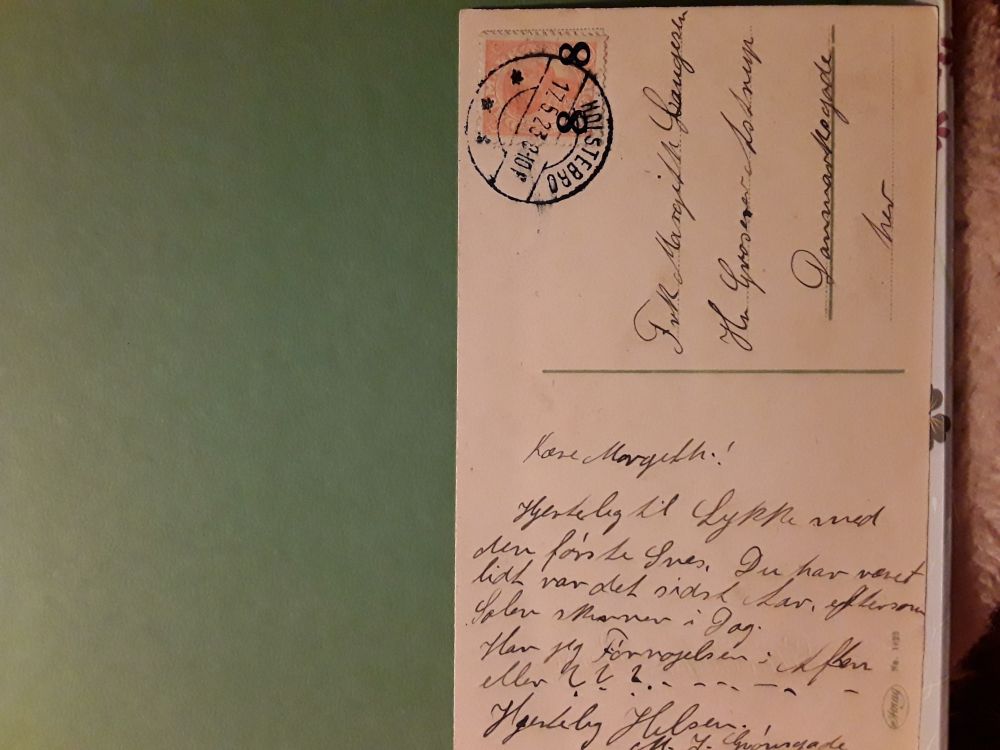 8
8
HOLSTEBRO
17.5.23. 8-10 F
Frk Margith
Hr. Grosserer Astrup
Danmarksgade
her
Kære Margith.!
Hjertelig til Lykke med
den første Snes. Du har været
lidt rar det sidst Aar, eftersom
Solen skinner i Dag.
Har jeg Fornøjelsen i Aften
eller ? ? ? . - - - - - -
Hjertelig Hilsen.
No. 1123